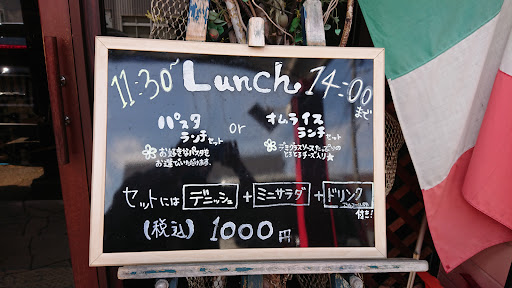 11:30~ Lunch 14:00まで
パスタランチセット or オムライスランチセット
お好きなパスタを
お選びいただけます。
デミグラスソースたっぷりの
とろとろチーズ入り★
セットには デニッシュ + ミニサラダ + ドリンク 付き!
(税込) 1000円